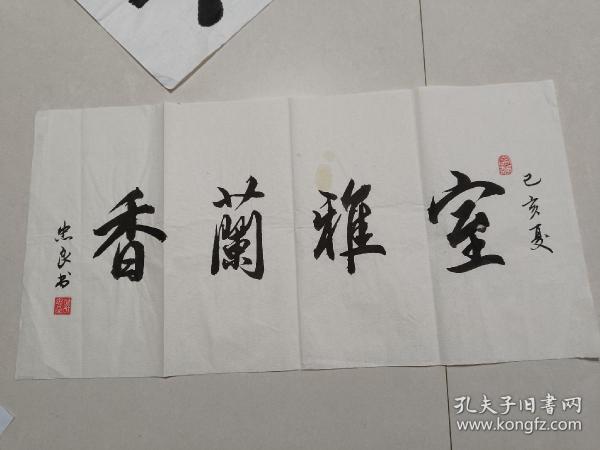 己亥夏
室雅蘭香
忠良书
孔夫子旧書网
www.kongfz.com